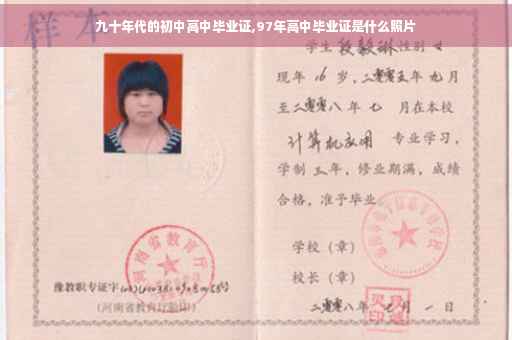 九十年代的初中高中毕业证,97年高中毕业证是什么照片
样本
学生 段毅琳 性别 女
现年 16 岁，二零零五年 九月
至二零零八年 七 月在本校
计算机应用 专业学习，
学制 三年，修业期满，成绩
合格，准予毕业
学校（章）
校长（章）
二零零八年 七月 一日
豫教职专证字
（河南省教育厅验印）
河南省教育厅